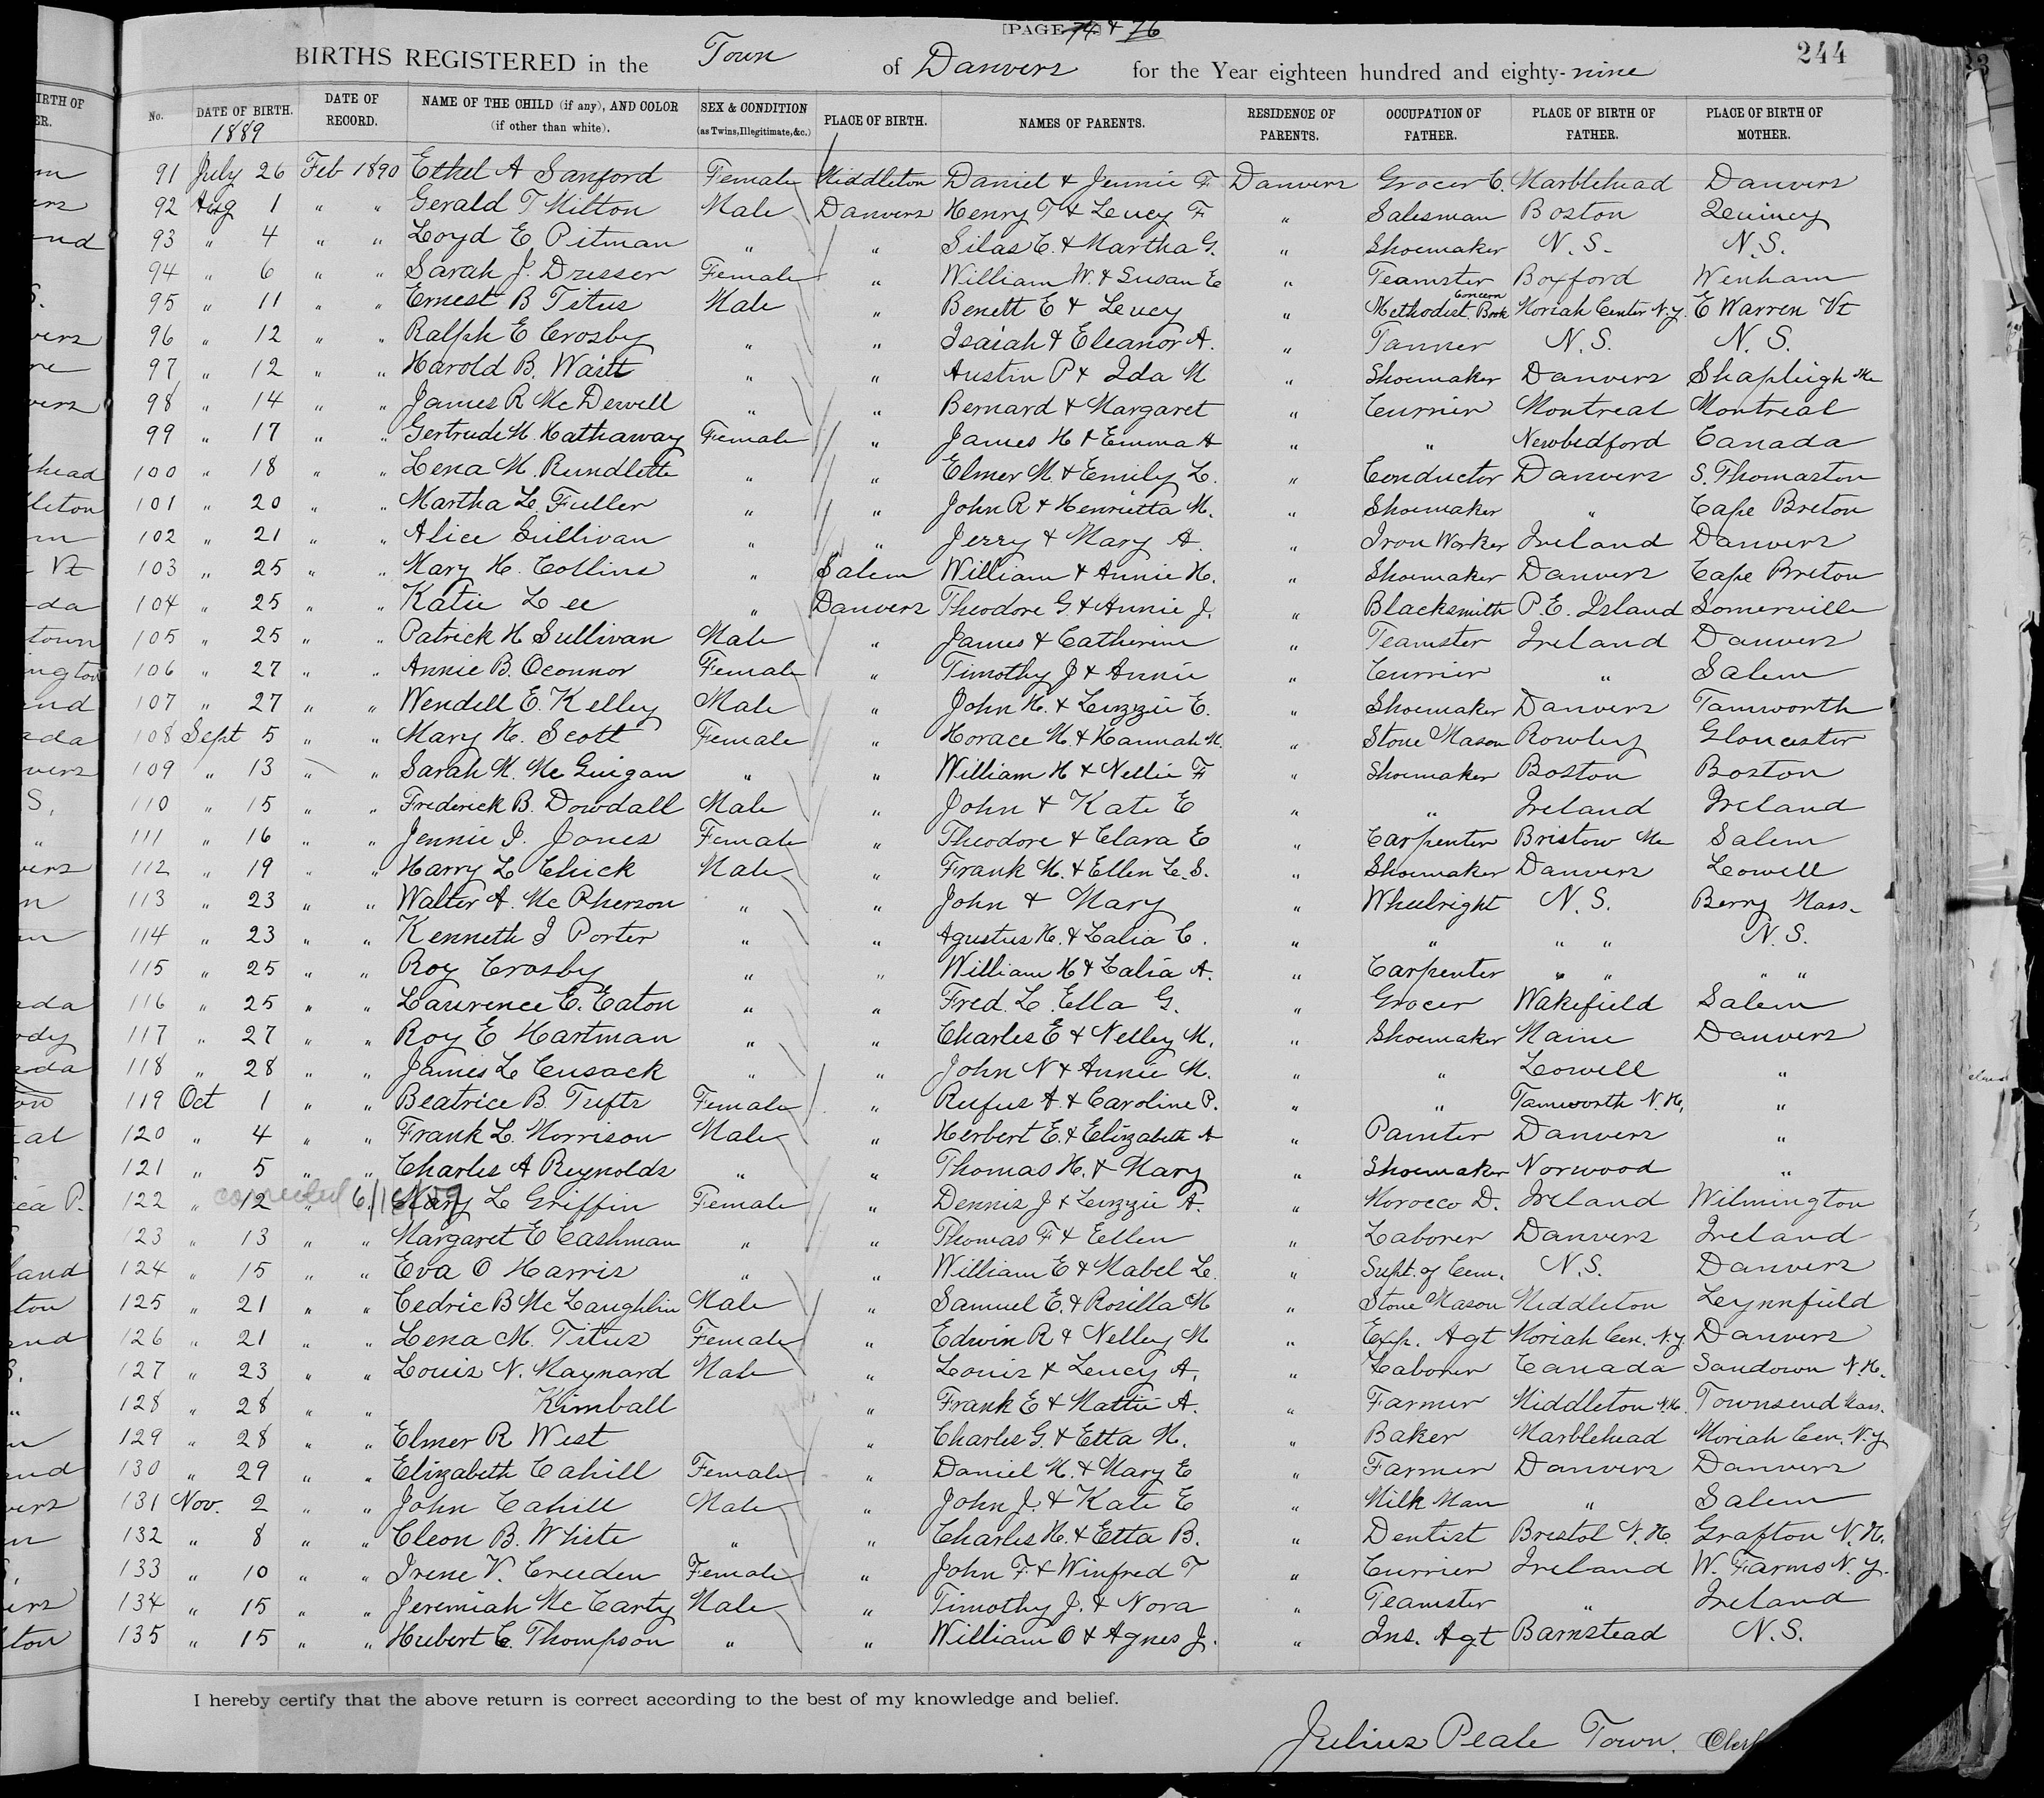 [PAGE 74] & 76
BIRTHS REGISTERED in the Town of Danvers for the Year eighteen hundred and eighty-nine 244
No. DATE OF BIRTH. 1889 DATE OF RECORD. NAME OF THE CHILD (if any), AND COLOR (if other than white). SEX & CONDITION (as Twins, Illegitimate, &c.) PLACE OF BIRTH. NAMES OF PARENTS. RESIDENCE OF PARENTS. OCCUPATION OF FATHER. PLACE OF BIRTH OF FATHER. PLACE OF BIRTH OF MOTHER.
91 July 26 Feb 1890 Ethel A Sanford Female Middleton Daniel & Jennie F Danvers Grocer C. Marblehead Danvers
92 Aug 1 " " Gerald T Milton Male Danvers Henry T & Lucy F " Salesman Boston Quincy
93 " 4 " " Loyd E Pitman " " Silas C. & Martha G. " Shoemaker N.S. N.S.
94 " 6 " " Sarah J. Dresser Female " William W. & Susan E " Teamster Boxford Wenham
95 " 11 " " Ernest B Titus Male " Benett E & Lucy " Methodist Book Concern Moriah Center N.Y. E Warren Vt
96 " 12 " " Ralph E Crosby " " Isaiah & Eleanor A. " Tanner N.S. N.S.
97 " 12 " " Harold B. Waitt " " Austin P & Ida M " Shoemaker Danvers Shapleigh Me
98 " 14 " " James R Mc Dewell " " Bernard & Margaret " Currier Montreal Montreal
99 " 17 " " Gertrude M. Hathaway Female " James H & Emma A " " Newbedford Canada
100 " 18 " " Lena M. Rundlette " " Elmer M & Emily L. " Conductor Danvers S. Thomaston
101 " 20 " " Martha L. Fuller " " John R & Henrietta M. " Shoemaker " Cape Breton
102 " 21 " " Alice Sullivan " " Jerry & Mary A. " Iron Worker Ireland Danvers
103 " 25 " " Mary H. Collins " Salem William & Annie H. " Shoemaker Danvers Cape Breton
104 " 25 " " Katie Lee " Danvers Theodore G. & Annie J. " Blacksmith P.E. Island Somerville
105 " 25 " " Patrick H Sullivan Male " James & Catherine " Teamster Ireland Danvers
106 " 27 " " Annie B. Oconnor Female " Timothy J & Annie " Currier " Salem
107 " 27 " " Wendell E. Kelley Male " John H. & Lizzie E. " Shoemaker Danvers Tamworth
108 Sept 5 " " Mary H. Scott Female " Horace M. & Hannah M. " Stone Mason Rowley Gloucester
109 " 13 " " Sarah M. Mc Guigan " " William H & Nellie F " Shoemaker Boston Boston
110 " 15 " " Frederick B. Dowdall Male " John & Kate E " " Ireland Ireland
111 " 16 " " Jennie I. Jones Female " Theodore & Clara E " Carpenter Bristow Me Salem
112 " 19 " " Harry L Chick Male " Frank M. & Ellen L. S. " Shoemaker Danvers Lowell
113 " 23 " " Walter A. Mc Pherson " " John & Mary " Wheelright N.S. Berry Mass.
114 " 23 " " Kenneth J Porter " " Agustus H. & Lalia C. " " " " N.S.
115 " 25 " " Roy Crosby " " William H & Lalia A. " Carpenter " " " "
116 " 25 " " Lawrence C. Eaton " " Fred. L. Ella G. " Grocer Wakefield Salem
117 " 27 " " Roy E Hartman " " Charles E & Nelley M. " Shoemaker Maine Danvers
118 " 28 " " James L Cusack " " John N & Annie M. " " Lowell "
119 Oct 1 " " Beatrice B. Tufts Female " Rufus A. & Caroline P. " " Tamworth N.H. "
120 " 4 " " Frank L. Morrison Male " Herbert E. & Elizabeth A " Painter Danvers "
121 " 5 " " Charles A Reynolds " " Thomas H. & Mary " Shoemaker Norwood "
122 " 12 " corrected Mary L Griffin Female " Dennis J & Lizzie A. " Morocco D. Ireland Wilmington
123 " 13 " " Margaret E Cashman " " Thomas F & Ellen " Laborer Danvers Ireland
124 " 15 " " Eva O Harris " " William E & Mabel L. " Supt. of Cem. N.S. Danvers
125 " 21 " " Cedric B Mc Laughlin Male " Samuel E. & Rosilla M " Stone Mason Middleton Lynnfield
126 " 21 " " Lena M. Titus Female " Edwin R & Nelley M " Exp. Agt Moriah Cen. N.Y. Danvers
127 " 23 " " Louis N. Maynard Male " Louis & Lucy A. " Laborer Canada Sandown N.H.
128 " 28 " " Kimball " Frank E & Mattie A. " Farmer Middleton N.H. Townsend Mass.
129 " 28 " " Elmer R West " Charles G. & Etta M. " Baker Marblehead Moriah Cen. N.Y.
130 " 29 " " Elizabeth Cahill Female " Daniel M. & Mary E " Farmer Danvers Danvers
131 Nov. 2 " " John Cahill Male " John J. & Kate E " Milk Man " Salem
132 " 8 " " Cleon B. White " " Charles H. & Etta B. " Dentist Bristol N.H. Grafton N.H.
133 " 10 " " Irene V. Creeden Female " John F. & Winfred T " Currier Ireland W. Farms N.Y.
134 " 15 " " Jeremiah Mc Carty Male " Timothy J. & Nora " Teamster " Ireland
135 " 15 " " Hubert C. Thompson " " William O & Agnes J. " Ins. Agt Barnstead N.S.
I hereby certify that the above return is correct according to the best of my knowledge and belief.
Julius Peale Town Clerk